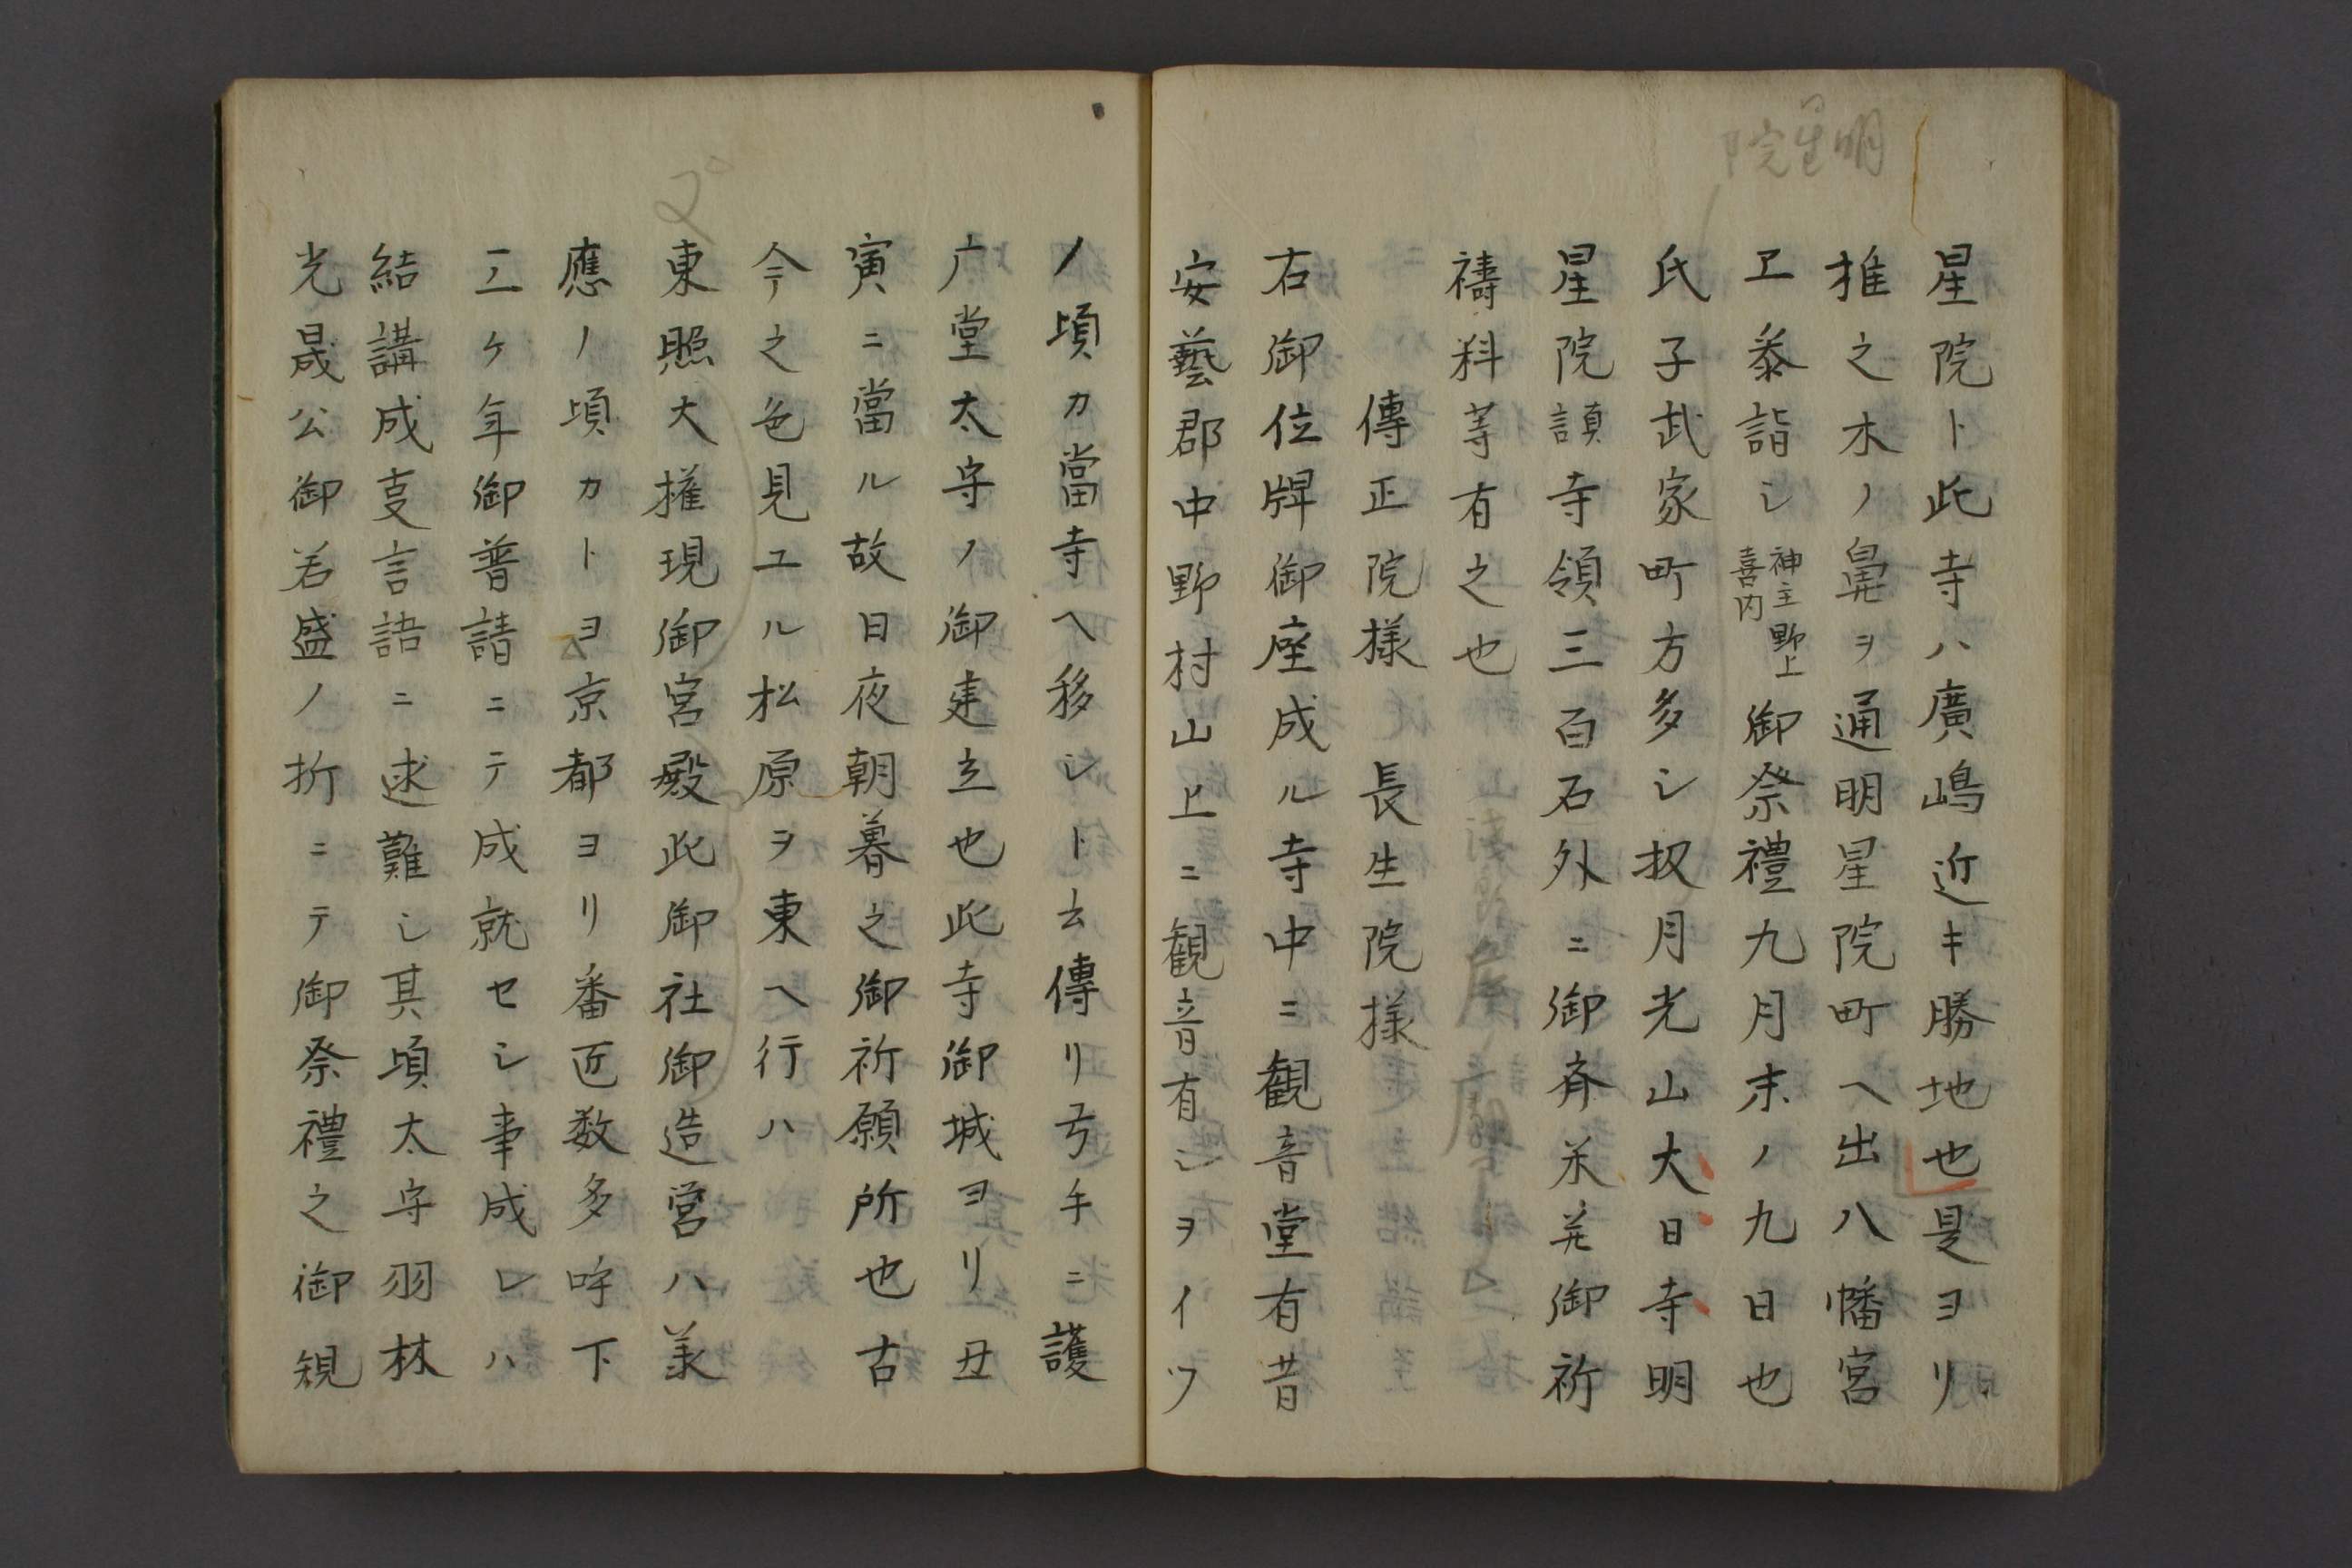 明星院
星院ト此寺ハ廣嶋近キ勝地也是ヨリ
推之木ノ鼻ヲ通明星院町ヘ出八幡宮
ヱ参詣シ神主野上喜内御祭禮九月末ノ九日也
氏子武家町方多シ扨月光山大日寺明
星院顗寺領三百石外ニ御斉米并御祈
禱料等有之也
傳正院様　長生院様
右御位牌御座成ル寺中ニ観音堂有昔
安藝郡中野村山上ニ観音有シヲイツ
ノ頃カ當寺ヘ移シト云傳リ弖手ニ護
广堂太守ノ御建立也此寺御城ヨリ丑
寅ニ當ル故日夜朝暮之御祈願所也古
今テ之色見ユル松原ヲ東ヘ行ハ
東照大権現御宮殿此御社御造営ハ美
應ノ頃カトヨ京都ヨリ番匠数多呼下
二ノケ年御普請ニテ成就セシ事成レハ
結講成叓言語ニ逑難シ其頃太守羽林
光晟公御若盛ノ折ニテ御祭禮之御規